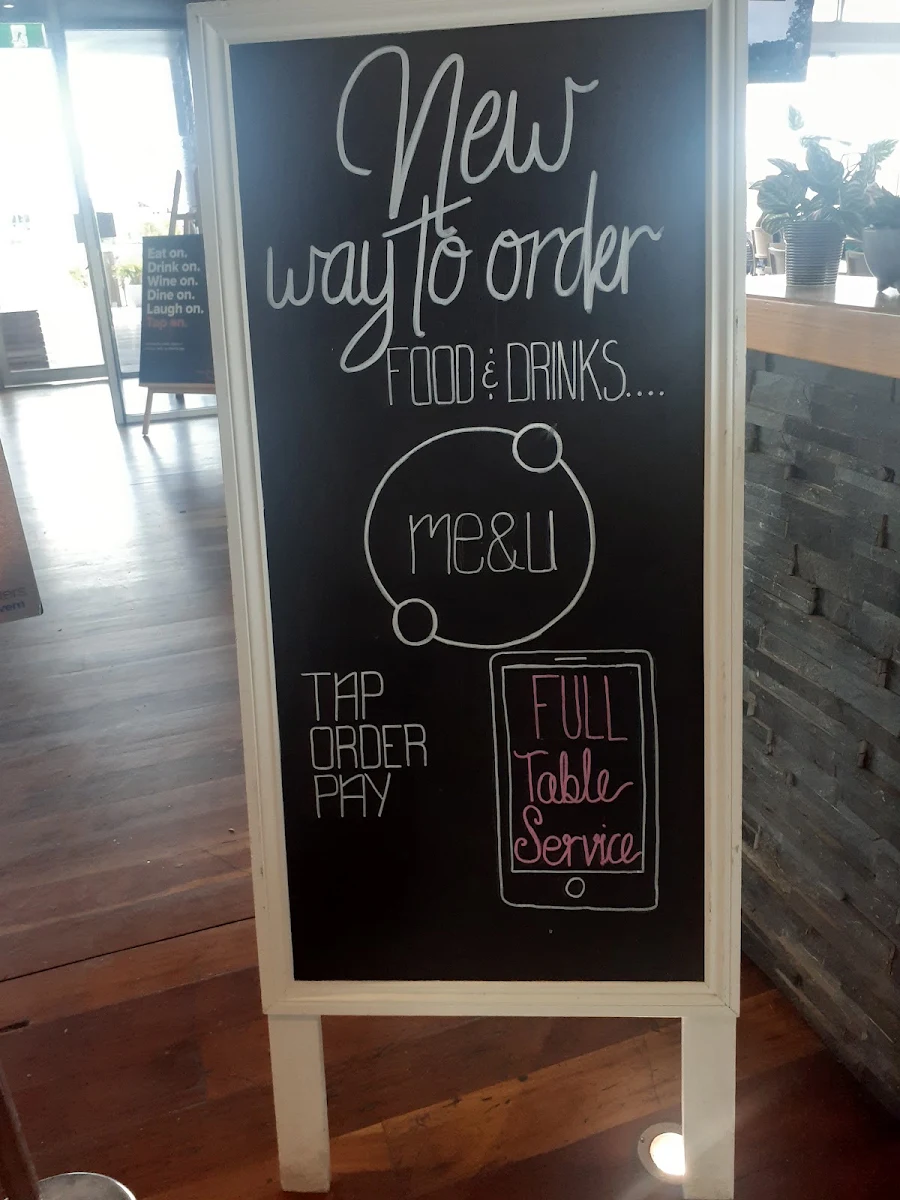 New
way to order
FOOD & DRINKS....
me&u
TAP
ORDER
PAY
FULL
Table
Service
Eat on.
Drink on.
Wine on.
Dine on.
Laugh on.
Tap on.